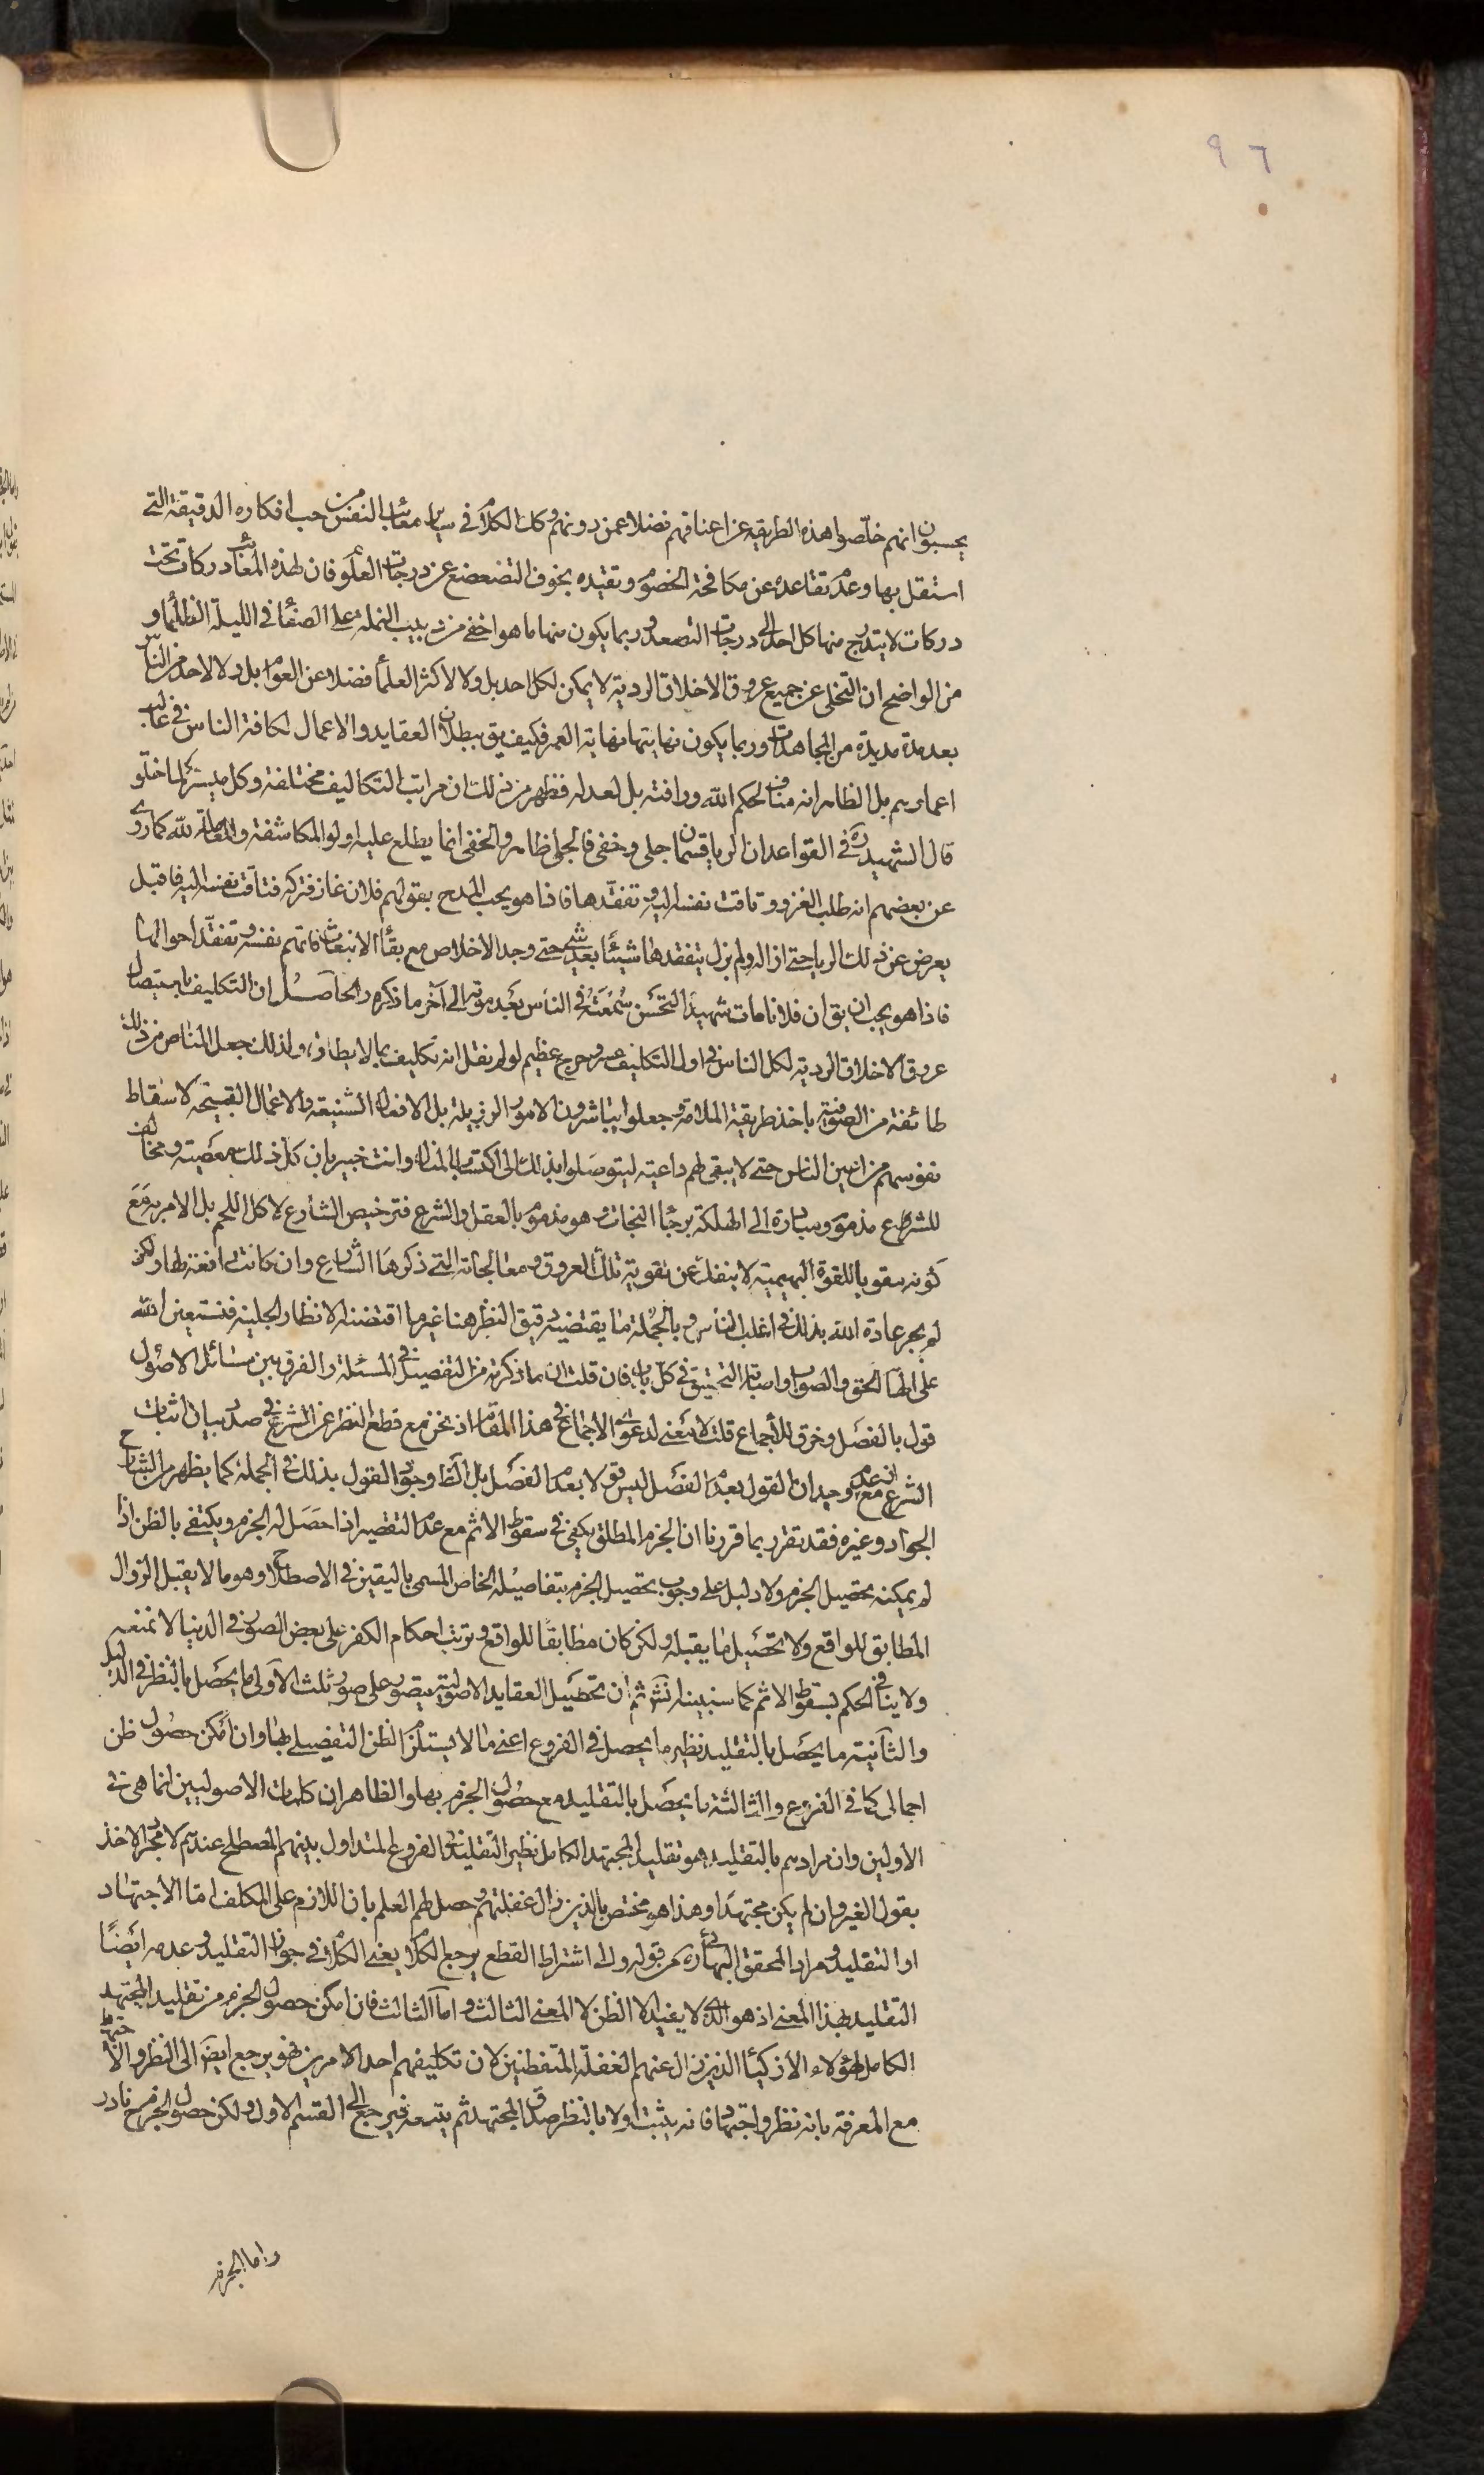 ٩٦
يحسبون انهم خلّصوا هذه الطريقة عن اعناقهم فضلا عمن دونهم وكك الكلام في ساير معائب النفس من حب افكاره الدقيقة التي
استقل بها وعدم تقاعده عن مكافحة الخصوم وتقيده بخوف التضعضع عن درجات العلو فان لهذه المعائب دركات تحت
دركات لا يتدرج منها كل احد الى درجات التصعد وربما يكون منها ما هو اخفى من دبيب النملة على الصفا في الليلة الظلماء و
من الواضح ان التخلى عن جميع عروق الاخلاق الردية لا يمكن لكل احد بل ولا لاكثر العلماء فضلا عن العوام بل ولا لاحد من الناس
بعد مدة مديدة من المجاهدات وربما يكون نهايتها نهاية العمر فكيف يق ببطلان العقايد والاعمال لكافة الناس في غالب
اعمارهم بل الظاهر انه مناف لحكم الله ورافته بل لعدله فظهر من ذلك ان مراتب التكاليف مختلفة وكل ميسر لما خلق له
قال الشهيد ره في القواعد ان الريا قسمان جلى وخفى فالجلى ظاهر والخفى انما يطلع عليه اولو المكاشفة والمعاملة لله كما روى
عن بعضهم انه طلب الغزو وتاقت نفسه اليه فتفقدها فاذا هو يحب المدح بقولهم فلان غاز فتركه فتاقت نفسه اليه فاقبل
يعرض عن ذلك الريا حتى ازاله ولم يزل يتفقدها شيئا بعد شئ حتى وجد الاخلاص مع بقاء الانبعاث فاتهم نفسه وتفقد احوالها
فاذا هو يحب ان يق ان فلانا مات شهيدا لتحسن سمعته في الناس بعد موته الى آخر ما ذكره والحاصل ان التكليف باستيصال
عروق الاخلاق الردية لكل الناس في اول التكليف عسر وحرج عظيم لو لم نقل انه تكليف بما لا يطاق ولذلك جعل المناص من ذلك
طائفة من الصوفية باخذ طريقة الملامة وجعلوا يتباشرون الامور الرذيلة بل الافعال الشنيعة والاعمال القبيحة لاسقاط
نفوسهم من اعين الناس حتى لا يبقى لهم داعية ليتوصلوا بذلك الى اكتساب المنال وانت خبير بان كل ذلك معصية ومخالف
للشرع مذموم ومبادرة الى الهلكة برجاء النجات وهو مذموم بالعقل والشرع فترخيص الشارع لاكل اللحم بل الامر به مع
كونه مقويا للقوة البهيمية لا ينفك عن تقوية تلك العروق ومعالجاته التي ذكرها الشارع وان كانت دافعة لها ولكن
لم يجر عادة الله بذلك في اغلب الناس وبالجملة ما يقتضيه دقيق النظر هنا غير ما اقتضته الانظار الجلية فنستعين الله
على الهام الحق والصواب واصابة التحقيق في كل باب فان قلت ان ما ذكرته من التفصيل في المسئلة والفرق بين مسائل الاصول
قول بالفصل وخرق للاجماع قلت لا معنى لدعوى الاجماع في هذا المقام اذ نحن مع قطع النظر عن الشرع في صدد بيان اثبات
الشرع مع ان عدم وجدان القول بعدم الفصل ليس قولا بعدم الفصل بل الظ وجود القول بذلك في الجملة كما يظهر من الشارح
الجواد وغيره فقد تقرر بما قررنا ان الجزم المطلق يكفي في سقوط الاثم مع عدم التقصير اذا حصل له الجزم ويكتفى بالظن اذا
لم يمكنه تحصيل الجزم ولا دليل على وجوب تحصيل الجزم بتفاصيله الخاص المسمى باليقين في الاصطلاح وهو ما لا يقبل الزوال
المطابق للواقع ولا تحصيل ما يقبله ولكن كان مطابقا للواقع وترتب احكام الكفر على بعض الصور في الدنيا لا نمنعه
ولا ينافي الحكم بسقوط الاثم كما سنبينه انش ثم ان تحصيل العقايد الاصولية يتصور على صور ثلث الاولى ما يحصل بالنظر في الدليل
والثانية ما يحصل بالتقليد نظير ما يحصل في الفروع اعني ما لا يستلزم الظن التفصيلي بها وان امكن حصول ظن
اجمالى كما في الفروع والثالثة ما يحصل بالتقليد مع حصول الجزم بها والظاهر ان كلمات الاصوليين انما هى في
الاولين وان مرادهم بالتقليد هو تقليد المجتهد الكامل نظير التقليد في الفروع المتداول بينهم المصطلح عندهم لا مجرد الاخذ
بقول الغير وان لم يكن مجتهدا وهذا هو مختص بالذين زال غفلتهم وحصل لهم العلم بان اللازم على المكلف اما الاجتهاد
او التقليد ومراد المحقق البهائى ره من قوله والى اشتراط القطع يرجع الكلام يعنى الكلام في جواز التقليد وعدمه ايضا
التقليد بهذا المعنى اذ هو الذى لا يفيد الا الظن لا المعنى الثالث واما الثالث فان امكن حصول الجزم من تقليد المجتهد
الكامل لهؤلاء الاذكياء الذين زال عنهم الغفلة المتفطنين لان تكليفهم احد الامرين فهو يرجع ايضا الى النظر والاجتهاد
مع المعرفة بانه نظر واجتهاد فانه يثبت اولا بالنظر صدق المجتهد ثم يتبعه فيرجع الى القسم الاول ولكن حصول الجزم ح نادر
واما الجزم